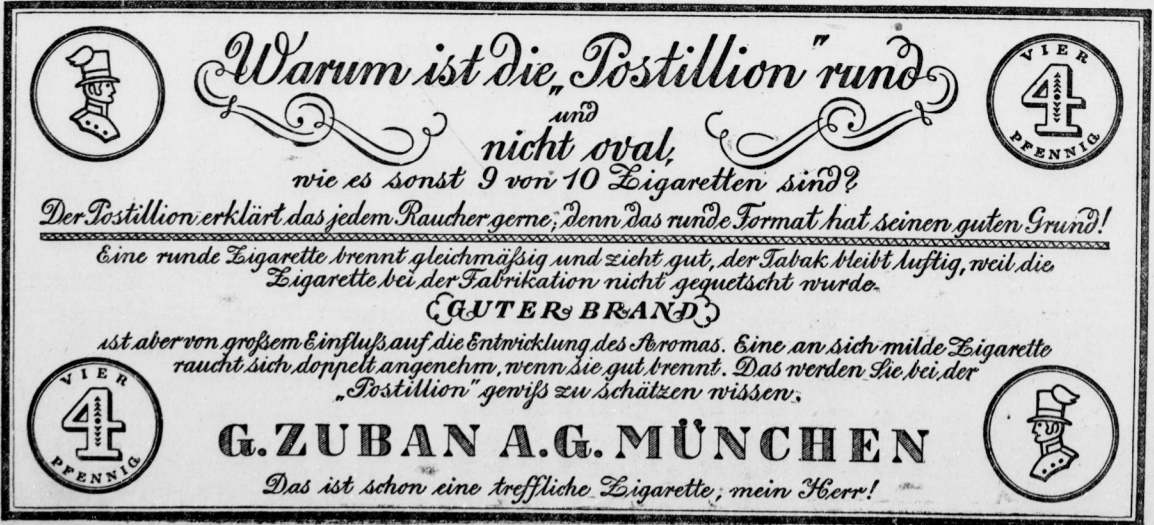 Warum ist die „Postillion" rund
und
nicht oval,
wie es sonst 9 von 10 Zigaretten sind?
Der Postillion erklärt das jedem Raucher gerne, denn das runde Format hat seinen guten Grund!
Eine runde Zigarette brennt gleichmäßig und zieht gut, der Tabak bleibt luftig, weil die
Zigarette bei der Fabrikation nicht gequetscht wurde.
GUTER BRAND
ist aber von großem Einfluß auf die Entwicklung des Aromas. Eine an sich milde Zigarette
raucht sich doppelt angenehm, wenn sie gut brennt. Das werden Sie bei der
„Postillion" gewiß zu schätzen wissen.
G. ZUBAN A.G. MÜNCHEN
Das ist schon eine treffliche Zigarette, mein Herr!
VIER
4
PFENNIG
VIER
4
PFENNIG